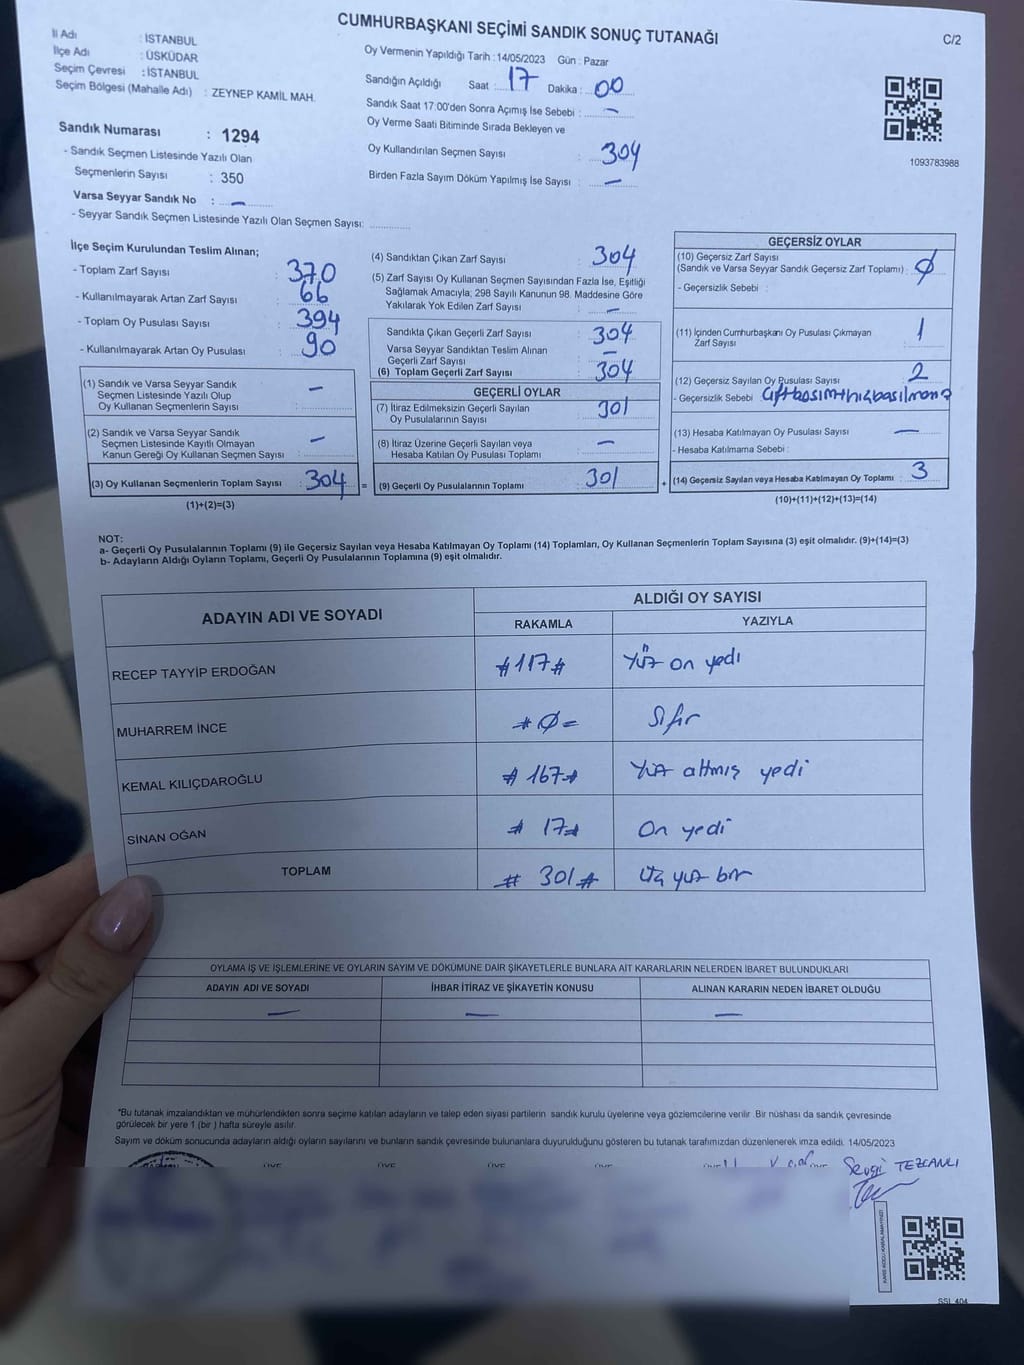 CUMHURBAŞKANI SEÇİMİ SANDIK SONUÇ TUTANAĞI
C/2
İl Adı : İSTANBUL
İlçe Adı : ÜSKÜDAR
Seçim Çevresi : İSTANBUL
Seçim Bölgesi (Mahalle Adı) : ZEYNEP KAMİL MAH.
Sandık Numarası : 1294
- Sandık Seçmen Listesinde Yazılı Olan
Seçmenlerin Sayısı : 350
Varsa Seyyar Sandık No : —
- Seyyar Sandık Seçmen Listesinde Yazılı Olan Seçmen Sayısı:
Oy Vermenin Yapıldığı Tarih : 14/05/2023 Gün : Pazar
Sandığın Açıldığı Saat : 17 Dakika : 00
Sandık Saat 17:00'den Sonra Açımış İse Sebebi : —
Oy Verme Saati Bitiminde Sırada Bekleyen ve
Oy Kullandırılan Seçmen Sayısı : 304
Birden Fazla Sayım Döküm Yapılmış İse Sayısı : —
1093783988
İlçe Seçim Kurulundan Teslim Alınan;
- Toplam Zarf Sayısı : 370
- Kullanılmayarak Artan Zarf Sayısı : 66
- Toplam Oy Pusulası Sayısı : 394
- Kullanılmayarak Artan Oy Pusulası : 90
(1) Sandık ve Varsa Seyyar Sandık
Seçmen Listesinde Yazılı Olup
Oy Kullanan Seçmenlerin Sayısı : —
(2) Sandık ve Varsa Seyyar Sandık
Seçmen Listesinde Kayıtlı Olmayan
Kanun Gereği Oy Kullanan Seçmen Sayısı : —
(3) Oy Kullanan Seçmenlerin Toplam Sayısı : 304 =
(1)+(2)=(3)
(4) Sandıktan Çıkan Zarf Sayısı : 304
(5) Zarf Sayısı Oy Kullanan Seçmen Sayısından Fazla İse, Eşitliği
Sağlamak Amacıyla; 298 Sayılı Kanunun 98. Maddesine Göre
Yakılarak Yok Edilen Zarf Sayısı : —
Sandıkta Çıkan Geçerli Zarf Sayısı : 304
Varsa Seyyar Sandıktan Teslim Alınan
Geçerli Zarf Sayısı : —
(6) Toplam Geçerli Zarf Sayısı : 304
GEÇERLİ OYLAR
(7) İtiraz Edilmeksizin Geçerli Sayılan
Oy Pusulasının Sayısı : 301
(8) İtiraz Üzerine Geçerli Sayılan veya
Hesaba Katılan Oy Pusulası Toplamı : —
(9) Geçerli Oy Pusulalarının Toplamı : 301 +
GEÇERSİZ OYLAR
(10) Geçersiz Zarf Sayısı
(Sandık ve Varsa Seyyar Sandık Geçersiz Zarf Toplamı) : Ø
- Geçersizlik Sebebi :
(11) İçinden Cumhurbaşkanı Oy Pusulası Çıkmayan
Zarf Sayısı : 1
(12) Geçersiz Sayılan Oy Pusulası Sayısı : 2
- Geçersizlik Sebebi :
(13) Hesaba Katılmayan Oy Pusulası Sayısı : —
- Hesaba Katılmama Sebebi :
(14) Geçersiz Sayılan veya Hesaba Katılmayan Oy Toplamı : 3
(10)+(11)+(12)+(13)=(14)
NOT:
a- Geçerli Oy Pusulalarının Toplamı (9) ile Geçersiz Sayılan veya Hesaba Katılmayan Oy Toplamı (14) Toplamları, Oy Kullanan Seçmenlerin Toplam Sayısına (3) eşit olmalıdır. (9)+(14)=(3)
b- Adayların Aldığı Oyların Toplamı, Geçerli Oy Pusulalarının Toplamına (9) eşit olmalıdır.
ADAYIN ADI VE SOYADI
ALDIĞI OY SAYISI
RAKAMLA YAZIYLA
RECEP TAYYİP ERDOĞAN #117# Yüz on yedi
MUHARREM İNCE #Ø= Sıfır
KEMAL KILIÇDAROĞLU #167# Yüz altmış yedi
SİNAN OĞAN #17# On yedi
TOPLAM #301# Üç yüz bir
OYLAMA İŞ VE İŞLEMLERİNE VE OYLARIN SAYIM VE DÖKÜMÜNE DAİR ŞİKAYETLERLE BUNLARA AİT KARARLARIN NELERDEN İBARET BULUNDUKLARI
ADAYIN ADI VE SOYADI İHBAR İTİRAZ VE ŞİKAYETİN KONUSU ALINAN KARARIN NEDEN İBARET OLDUĞU
— — —
*Bu tutanak imzalandıktan ve mühürlendikten sonra seçime katılan adayların ve talep eden siyasi partilerin sandık kurulu üyelerine veya gözlemcilerine verilir. Bir nüshası da sandık çevresinde
görülecek bir yere 1 (bir) hafta süreyle asılır.
Sayım ve döküm sonucunda adayların aldığı oyların sayılarını ve bunların sandık çevresinde bulunanlara duyurulduğunu gösteren bu tutanak tarafımızdan düzenlenerek imza edildi. 14/05/2023
ÜYE ÜYE ÜYE ÜYE
Sevgi TEZCANLI
SSL 404